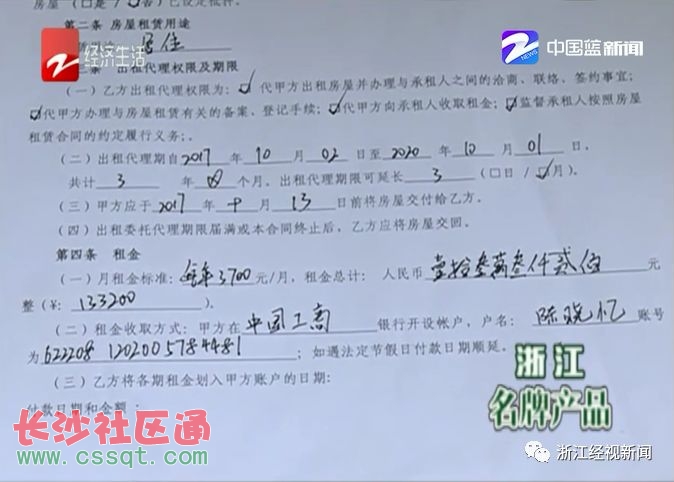 房屋（□是/☑否）已设定抵押。
第二条 房屋租赁用途
居住
经济生活
中国蓝新闻
条 出租代理权限及期限
（一）乙方出租代理权限为：☑代甲方出租房屋并办理与承租人之间的洽商、联络、签约事宜；
☑代甲方办理与房屋租赁有关的备案、登记手续；☑代甲方向承租人收取租金；☑监督承租人按照房屋
租赁合同的约定履行义务；。
（二）出租代理期自2017年10月02日至2020年10月01日。
共计3年 个月，出租代理期限可延长3（□日/☑月）。
（三）甲方应于2017年十月13日前将房屋交付给乙方。
（四）出租委托代理期限届满或本合同终止后，乙方应将房屋交回。
第四条 租金
（一）月租金标准：每年3700元/月，租金总计：人民币壹拾叁萬叁仟贰佰元
整（¥：133200）。
（二）租金收取方式：甲方在中国工商银行开设帐户，户名：陈晓忆 账号
为622208 1202005784481；如遇法定节假日付款日期顺延。
（三）乙方将各期租金划入甲方账户的日期：
付款日期和金额：
浙江
名牌产品
长沙社区通
www.cssqt.com
浙江经视新闻